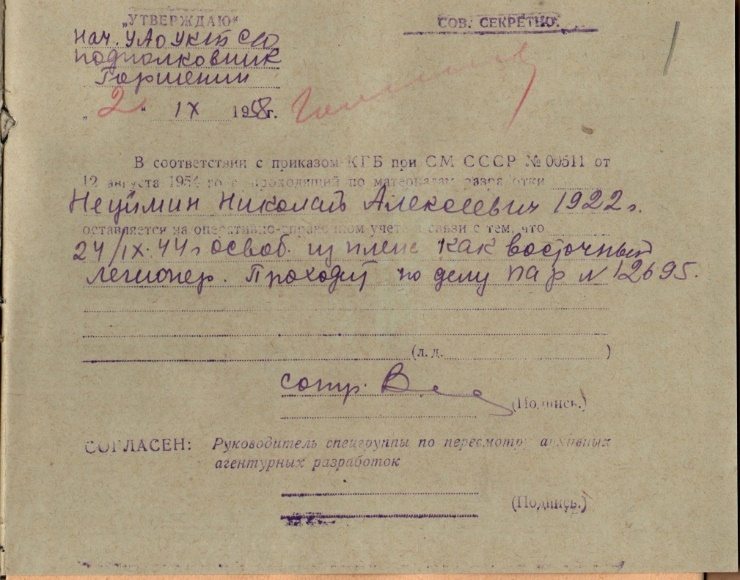 „УТВЕРЖДАЮ“
СОВ. СЕКРЕТНО.
Нач. УАО УКГБ СО
подполковник
Горшенин
„2“ IX 1958г.
В соответствии с приказом КГБ при СМ СССР № 00511 от
12 августа 1954 года проходящий по материалам разработки
Николай Алексеевич 1922 г.
оставляется на оперативно-справочном учете в связи с тем, что
24/IX-44 г освоб. из плена как восточный
легионер. Проходит по делу пар N 12695.
(л. д. )
сотр.
(Подпись.)
СОГЛАСЕН: Руководитель спецгруппы по пересмотру архивных
агентурных разработок
(Подпись.)